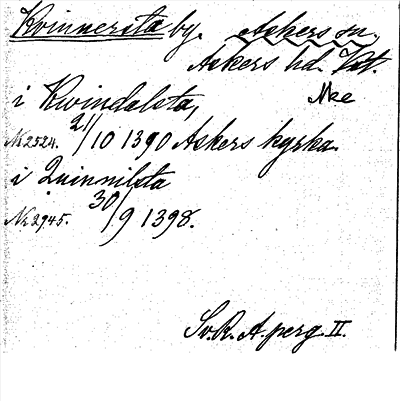 Kvinnersta by. Askers sn.
Askers hd. Vst.
Nke
i Kwindalsta,
Nr 2524. 21/10 1390 Askers kyrka.
i Quinnilsta
Nr 2945. 30/9 1398.
Sv. R. A. perg. II.